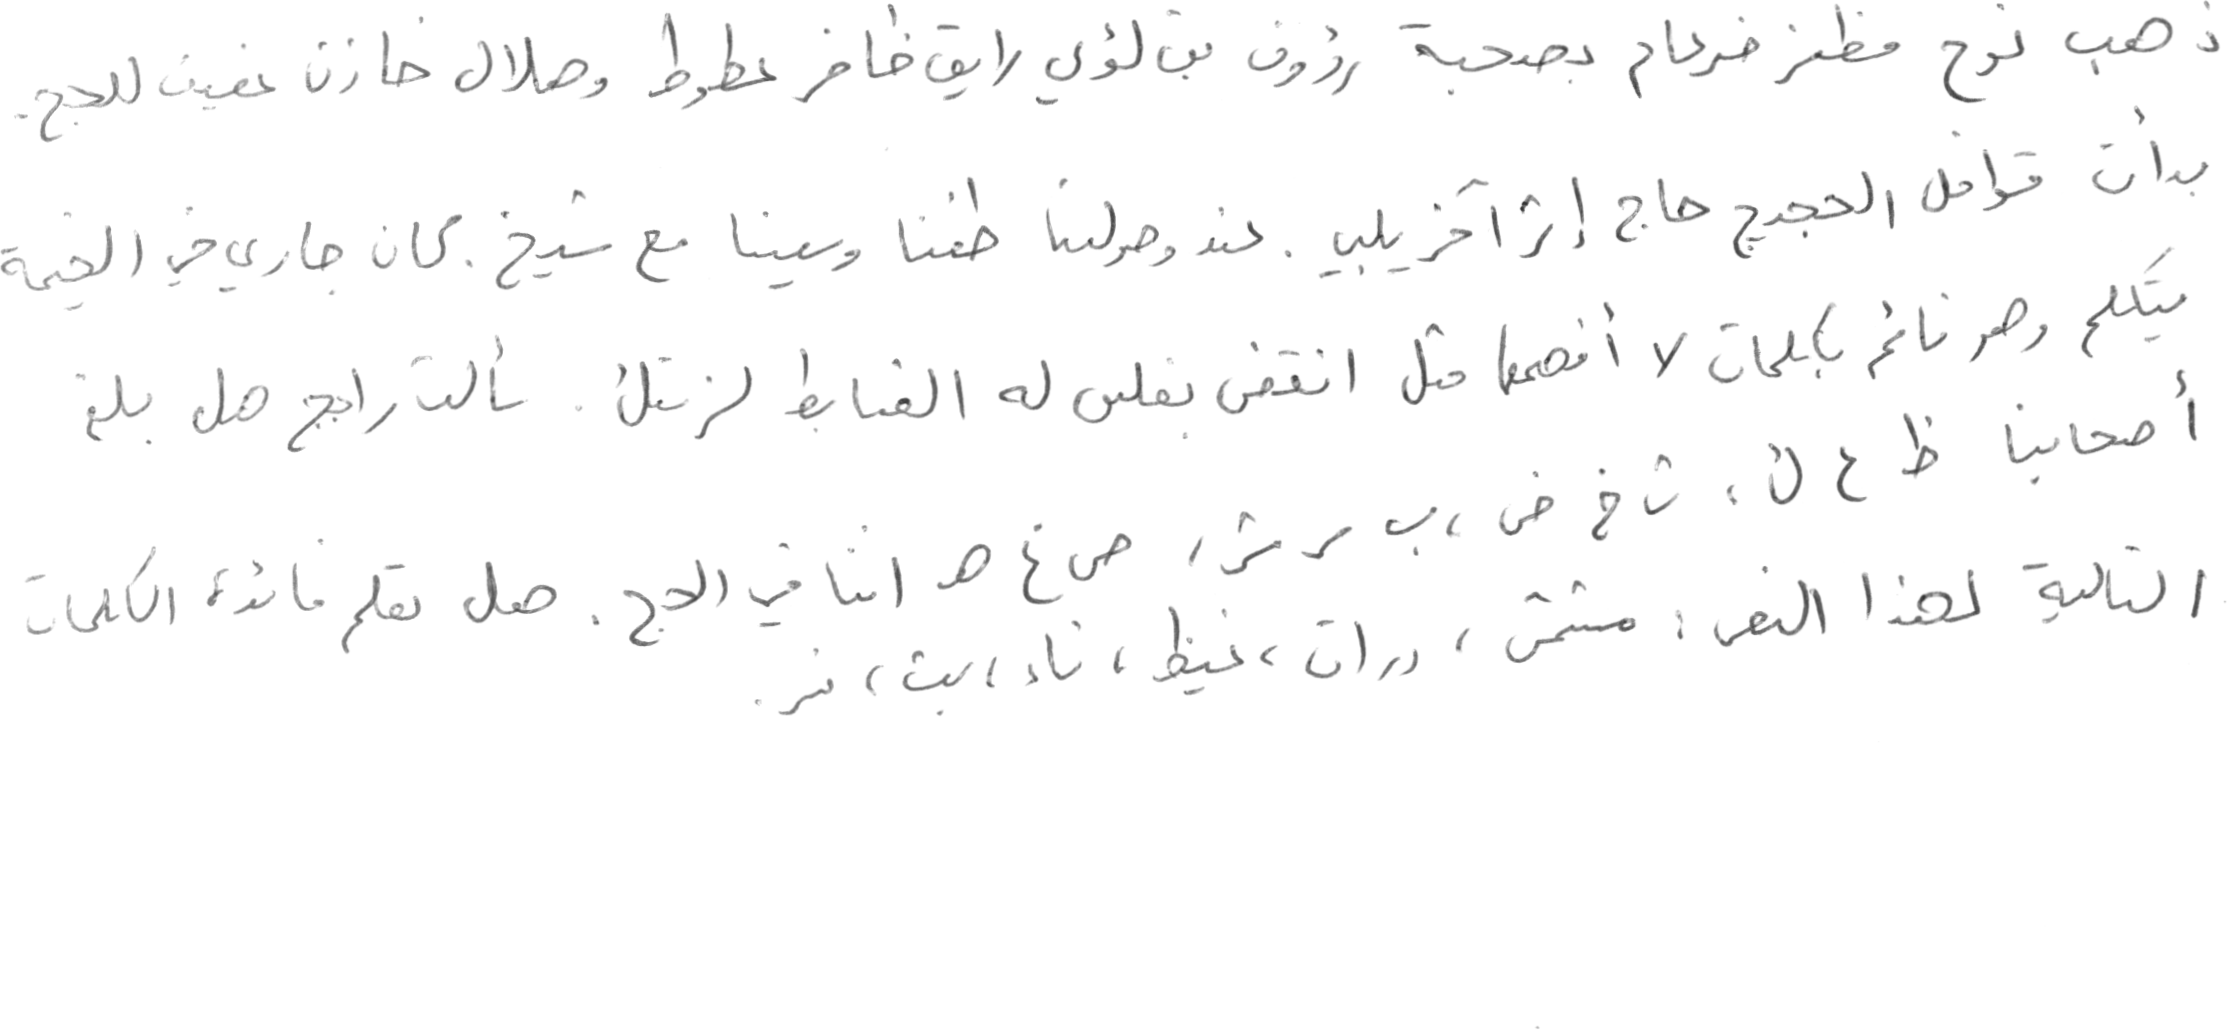 ذهب نوح مظفر ضرغام بصحبة رؤوف بن لؤي رايق ظافر عطوط وهلال خازن عفيف للحج.
بدأت قوافل الحجيج حاج إثر آخر يلبي. عند وصولنا طفنا وسعينا مع شيخ. كان جاري في الخيمة
يتكلم وهو نائم بكلمات لا أفهمها مثل انقض بغلس له الضابط لزنتك. سألت راجح هل بلغ
أصحابنا ظ ع ك، ث خ ض، ب س ش، ص غ هـ اننا في الحج. هل تعلم فائدة الكلمات
التالية لهذا النص: مشمش، درات، غيظ، ناء، بث، نر.